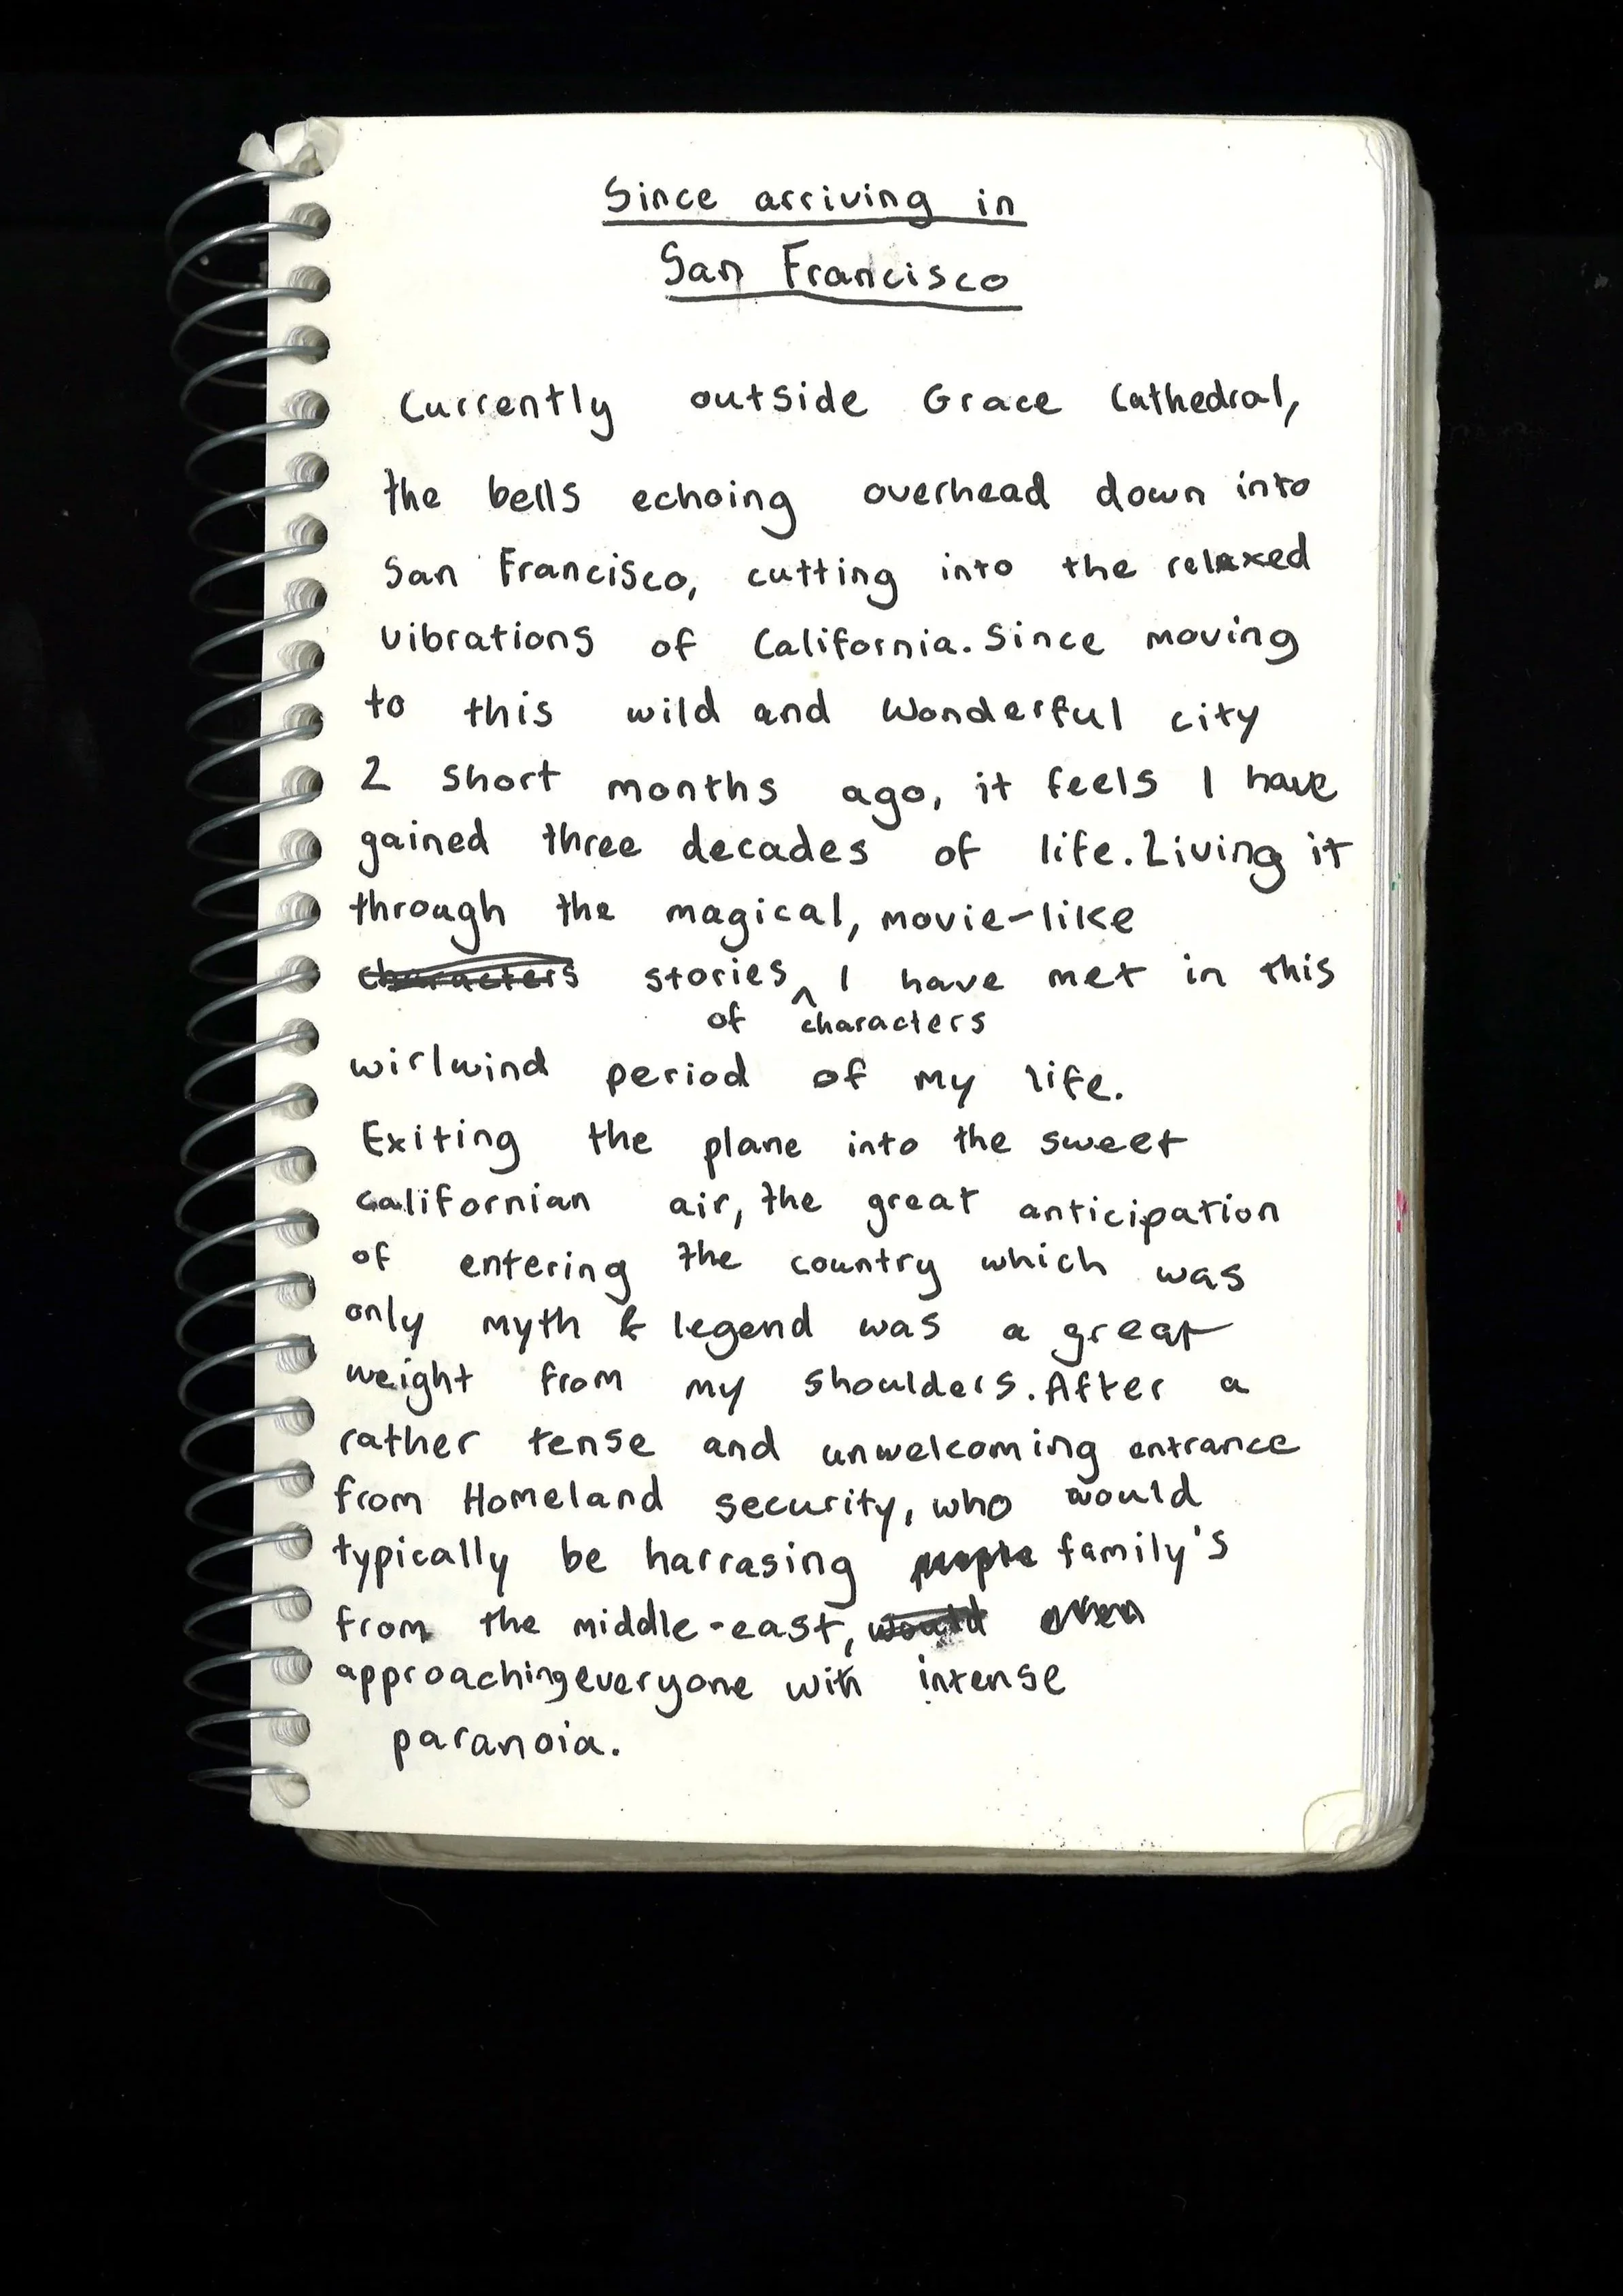 Since arriving in
San Francisco
Currently outside Grace Cathedral,
the bells echoing overhead down into
San Francisco, cutting into the relaxed
vibrations of California. Since moving
to this wild and wonderful city
2 short months ago, it feels I have
gained three decades of life. Living it
through the magical, movie-like
characters stories ^ I have met in this
of characters
wirlwind period of my life.
Exiting the plane into the sweet
californian air, the great anticipation
of entering the country which was
only myth & legend was a great
weight from my shoulders. After a
rather tense and unwelcoming entrance
from Homeland security, who would
typically be harrasing people family's
from the middle-east, would
approaching everyone with intense
paranoia.